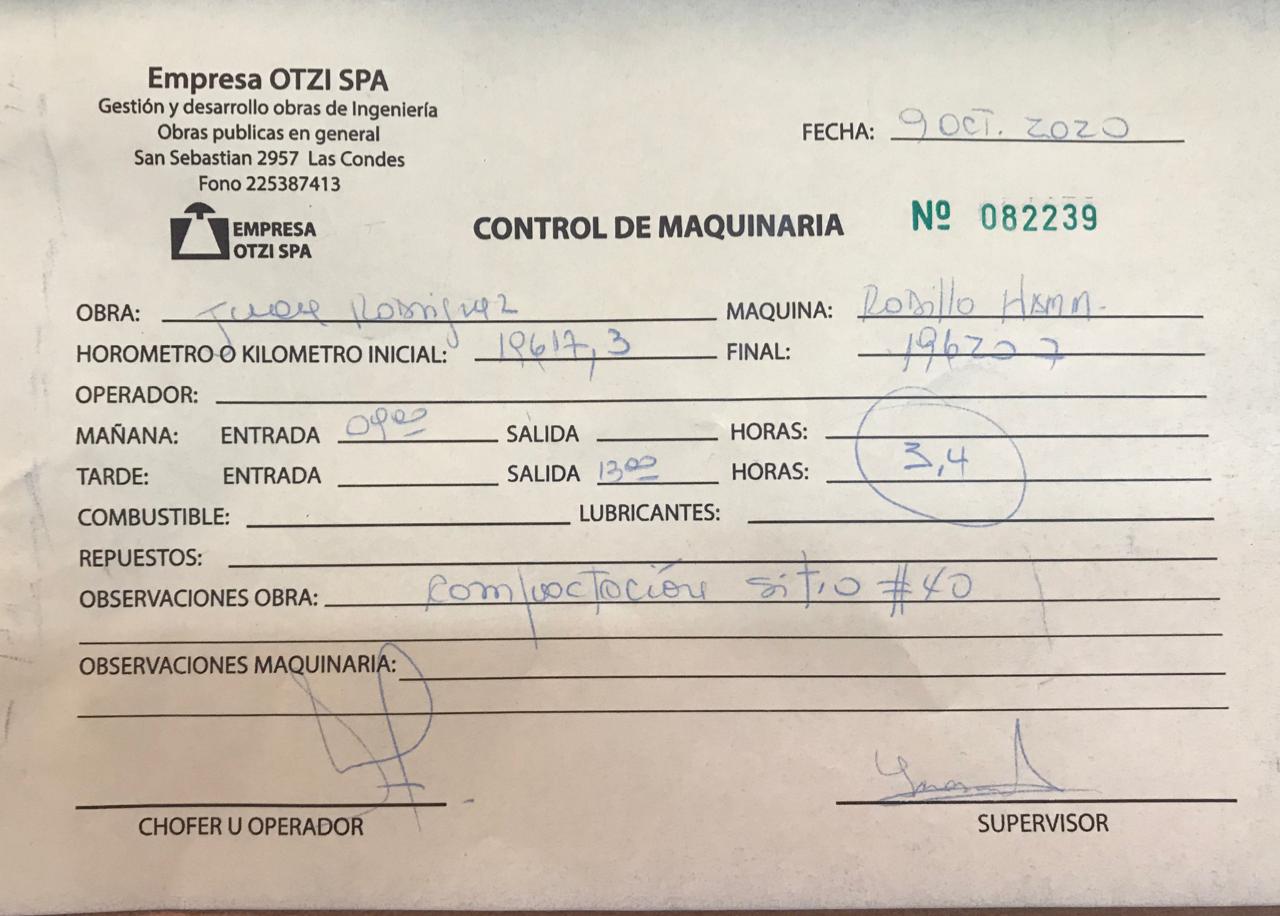 Empresa OTZI SPA
Gestión y desarrollo obras de Ingeniería
Obras publicas en general
San Sebastian 2957 Las Condes
Fono 225387413
EMPRESA
OTZI SPA
FECHA: 9 OCT. 2020
CONTROL DE MAQUINARIA
Nº 082239
OBRA: Rodriguez MAQUINA: Rodillo HAMM.
HOROMETRO O KILOMETRO INICIAL: 19617,3 FINAL: 19620 7
OPERADOR:
MAÑANA: ENTRADA 0900 SALIDA HORAS:
TARDE: ENTRADA SALIDA 1300 HORAS: 3,4
COMBUSTIBLE: LUBRICANTES:
REPUESTOS:
OBSERVACIONES OBRA: Compactación sitio #40
OBSERVACIONES MAQUINARIA:
CHOFER U OPERADOR SUPERVISOR